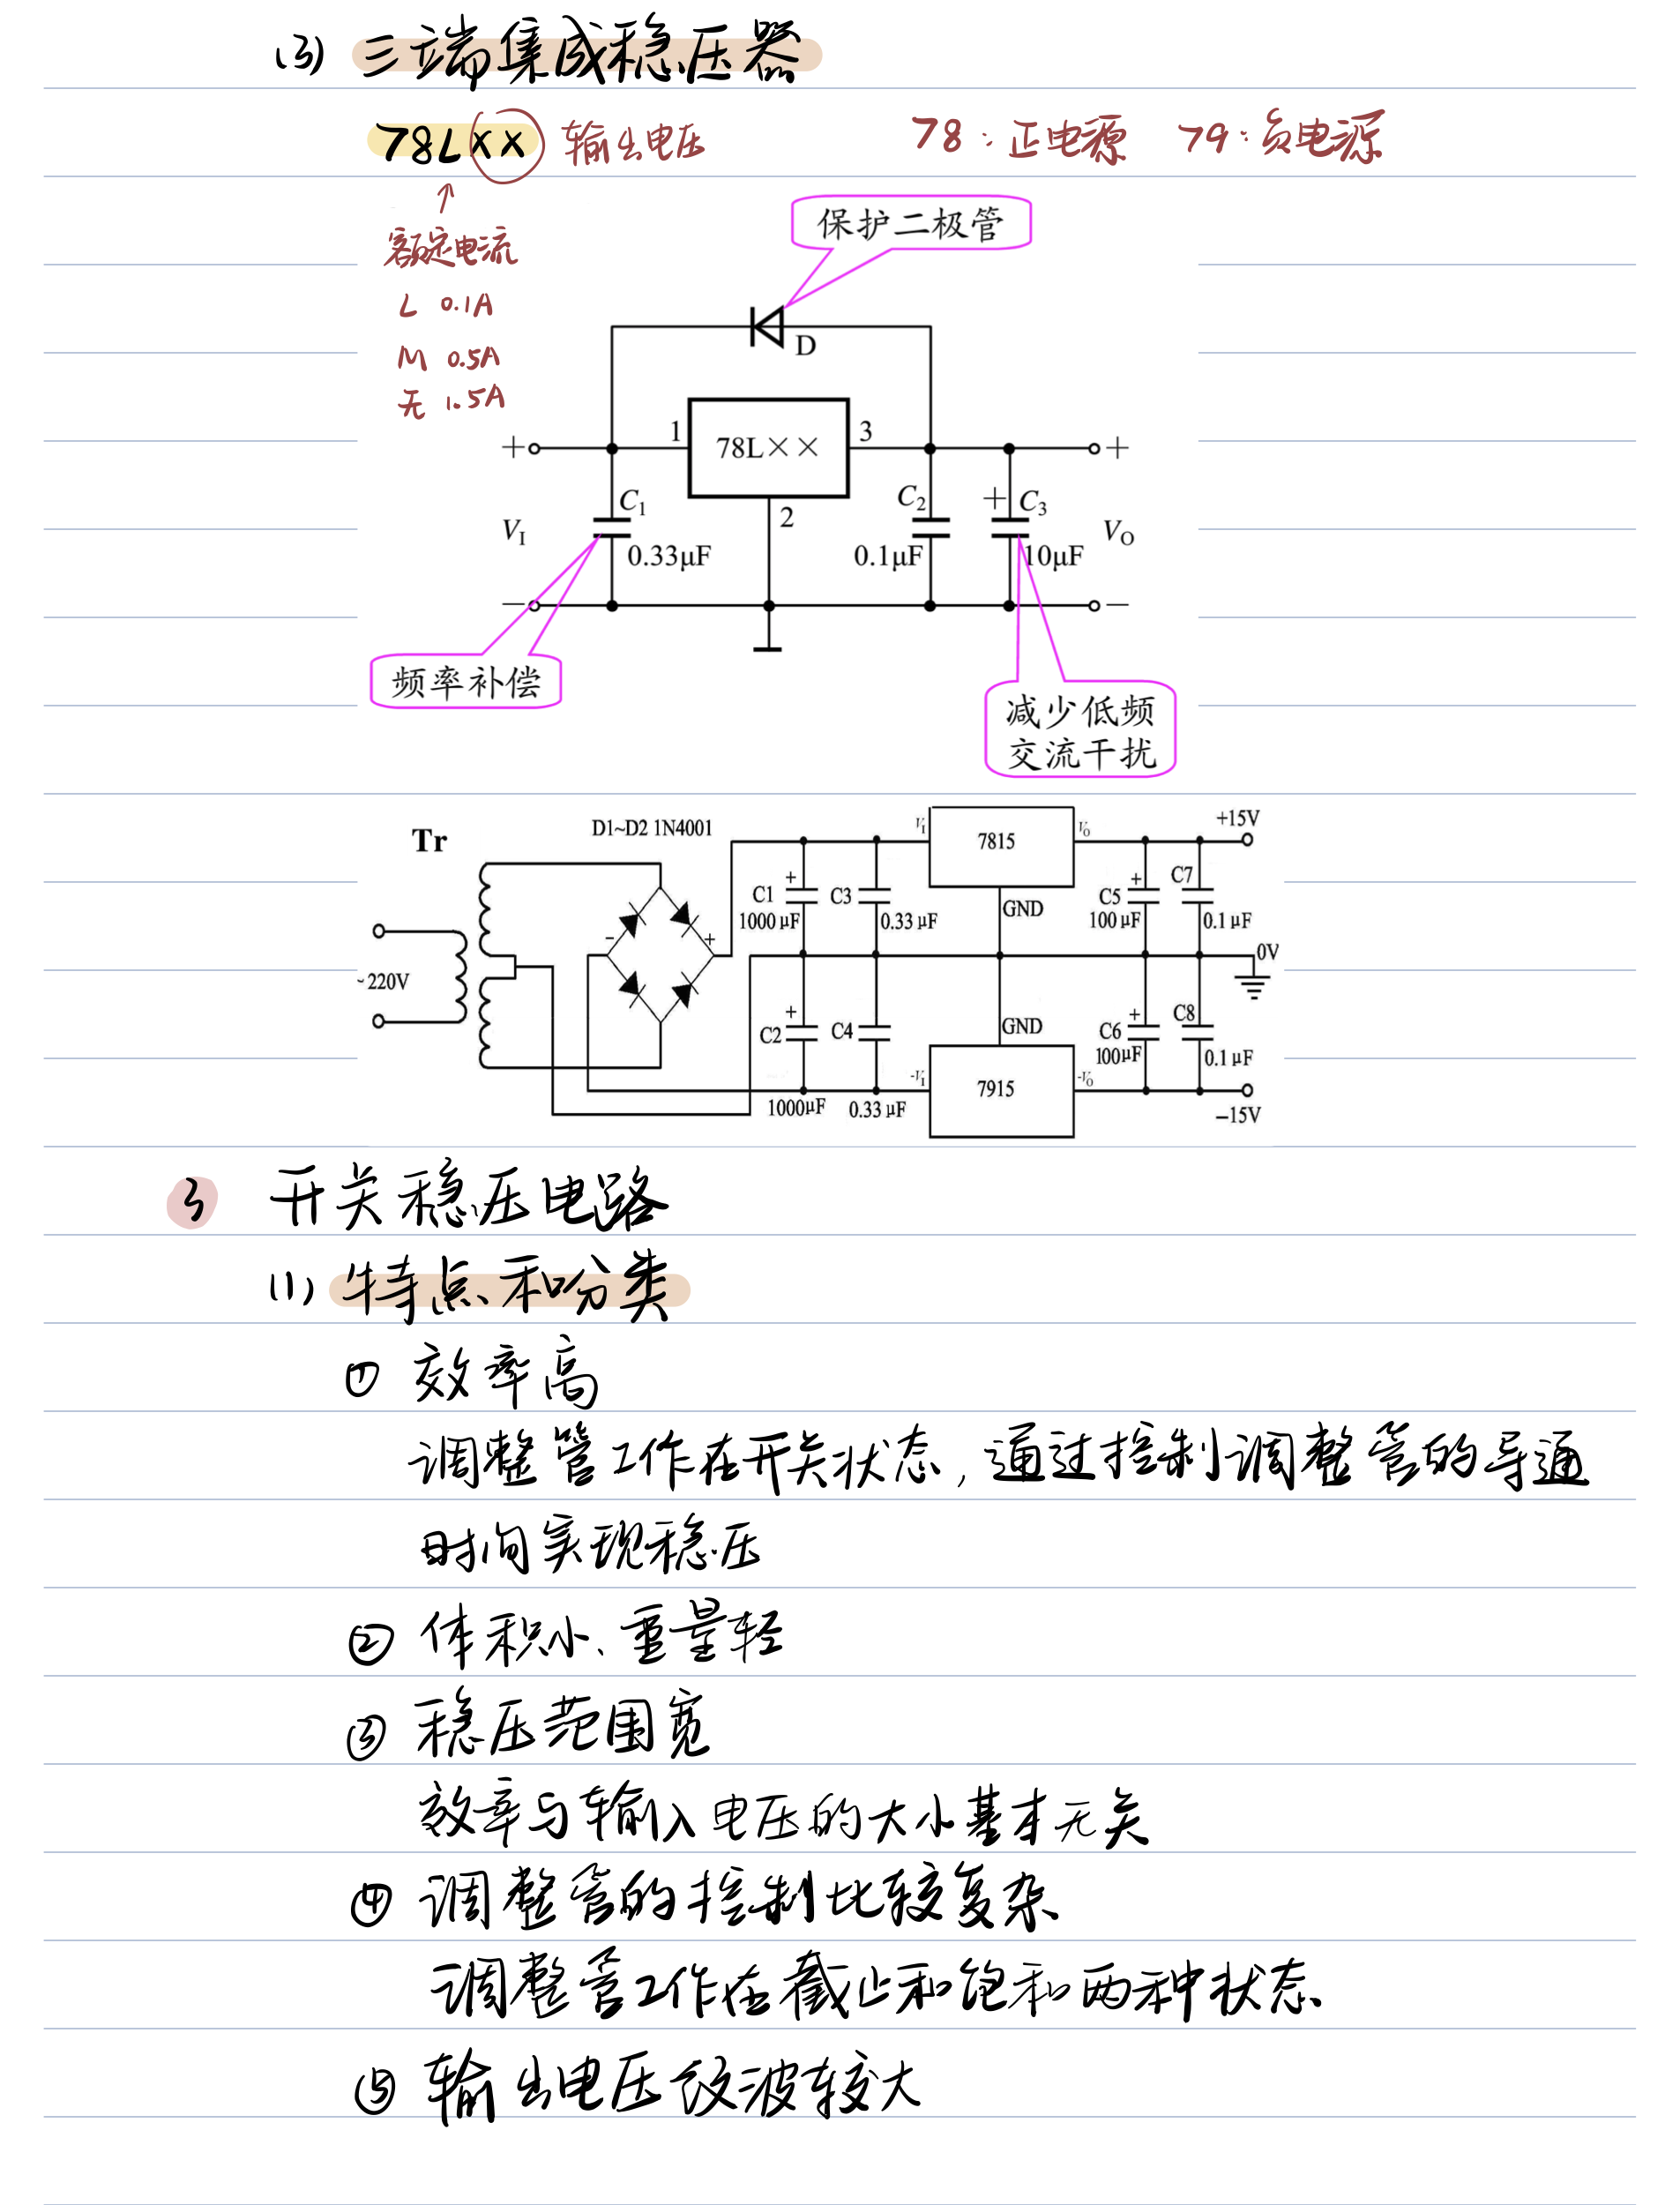 (3) 三端集成稳压器
78L×× 输出电压 78:正电源 79:负电源
↑
额定电流
L 0.1A
M 0.5A
无 1.5A
保护二极管
D
+ 1 78L×× 3 +
C1 2 C2 + C3
VI 0.33μF 0.1μF 10μF VO
− −
频率补偿
减少低频
交流干扰
Tr D1~D2 1N4001 VI 7815 VO +15V
C1 + C3 C5 + C7
1000 μF 0.33 μF GND 100 μF 0.1 μF
− +
~220V 0V
C2 + C4 GND C6 + C8
100μF 0.1 μF
-VI 7915 -VO
1000μF 0.33 μF −15V
3 开关稳压电路
(1) 特点和分类
① 效率高
调整管工作在开关状态,通过控制调整管的导通
时间实现稳压
② 体积小、重量轻
③ 稳压范围宽
效率与输入电压的大小基本无关
④ 调整管的控制比较复杂
调整管工作在截止和饱和两种状态
⑤ 输出电压纹波较大